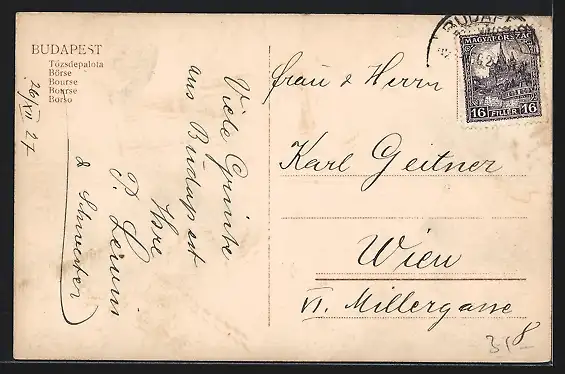 BUDAPEST
Tőzsdepalota
Börse
Bourse
Bourse
Borso
26/XII 27
Viele Grüße
aus Budapest
Ihre
& Schwester
BUDAPEST
MAGYARORSZÁG
16 FILLÉR 16
Frau & Herrn
Karl Geitner
Wien
VI. Millergasse